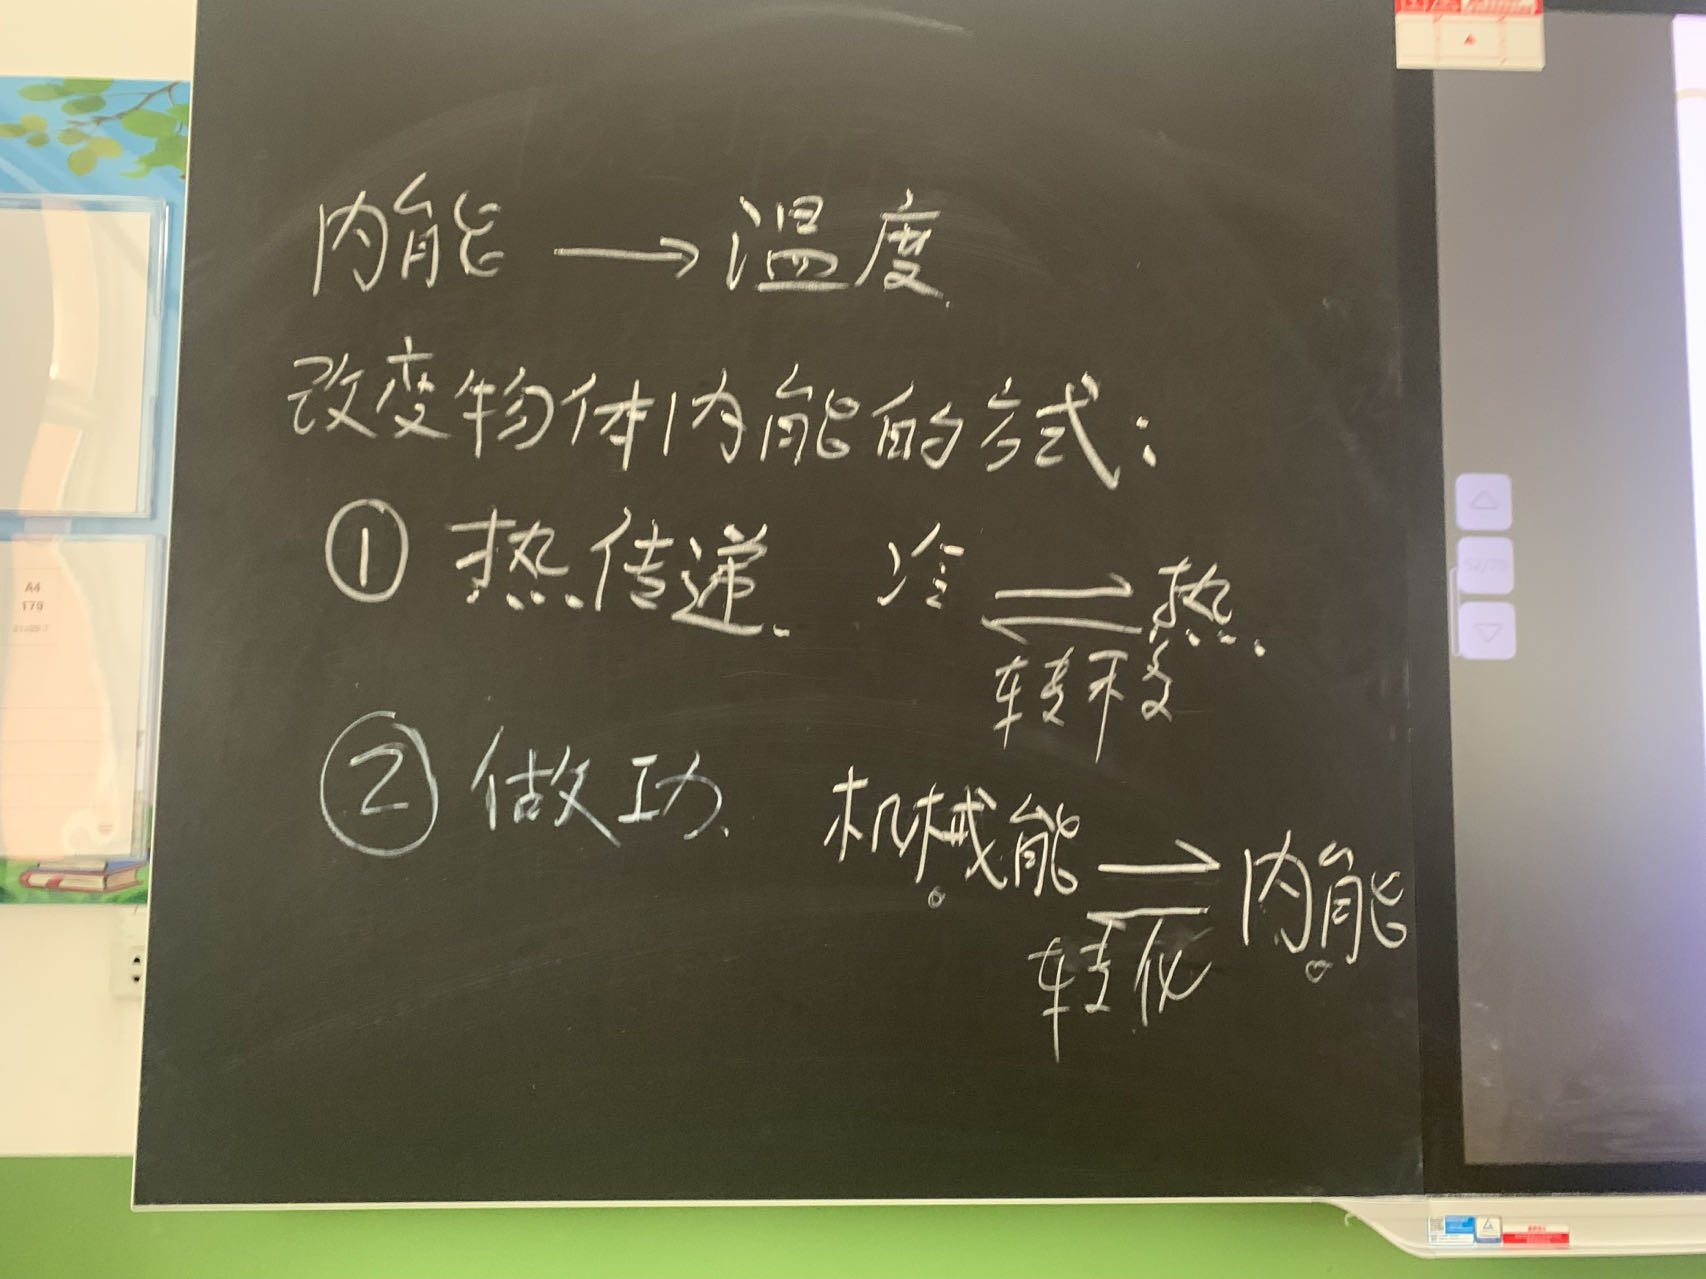 内能 → 温度
改变物体内能的方式：
① 热传递. 冷 ⇌ 热.
转移
② 做功. 机械能 ⇌ 内能
转化
A4
179
52/75